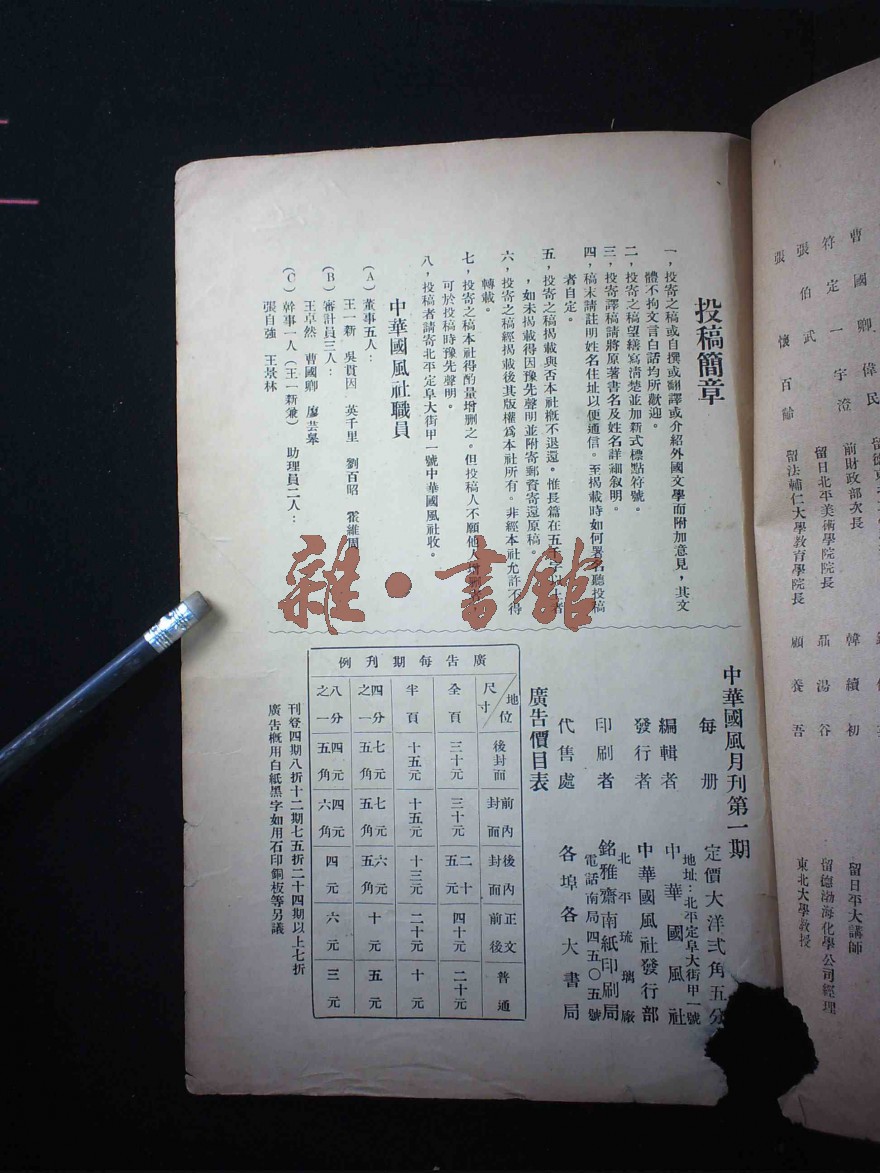 投稿簡章
一，投寄之稿或自撰或翻譯或介紹外國文學而附加意見，其文
體不拘文言白話均所歡迎。
二，投寄之稿望繕寫清楚並加新式標點符號。
三，投寄譯稿請將原著書名及姓名詳細叙明。
四，稿末請註明姓名住址以便通信。至揭載時如何署名聽投稿
者自定。
五，投寄之稿揭載與否本社概不退還。惟長篇在五千字以上者
，如未揭載得因豫先聲明並附寄郵資寄還原稿。
六，投寄之稿經揭載後其版權爲本社所有。非經本社允許不得
轉載。
七，投寄之稿本社得酌量增删之。但投稿人不願他人增删者
可於投稿時豫先聲明。
八，投稿者請寄北平定阜大街甲一號中華國風社收。
中華國風社職員
(A) 董事五人：
王一新 吳貫因 英千里 劉百昭 霍維周
(B) 審計員三人：
王卓然 曹國卿 廖芸皋
(C) 幹事一人（王一新兼） 助理員二人：
張自強 王景林
中華國風月刊第一期
每册 定價大洋弍角五分
編輯者 中華國風社
地址：北平定阜大街甲一號
發行者 中華國風社發行部
北平琉璃廠
印刷者 銘雅齋南紙印刷局
電話南局四五〇五號
代售處 各埠各大書局
廣告價目表
廣告每期刊例
地位 尺寸 全頁 半頁 四分之一 八分之一
後封面 三十元 十五元 七元五角 四元五角
前封內面 三十元 十五元 七元五角 四元六角
後封內面 二十五元 十三元 六元五角 四元
正文前後 四十元 二十元 十元 六元
普通 二十元 十元 五元 三元
刊登四期八折十二期七五折二十四期以上七折
廣告概用白紙黑字如用石印銅板等另議
曹國卿
符定一
張伯武
張懷
偉民
宇澄
百齡
前財政部次長
留日北平美術學院院長
留法輔仁大學教育學院長
韓續初
聶湯谷
顧養吾
留日平大講師
留德渤海化學公司經理
東北大學教授
雜·書館